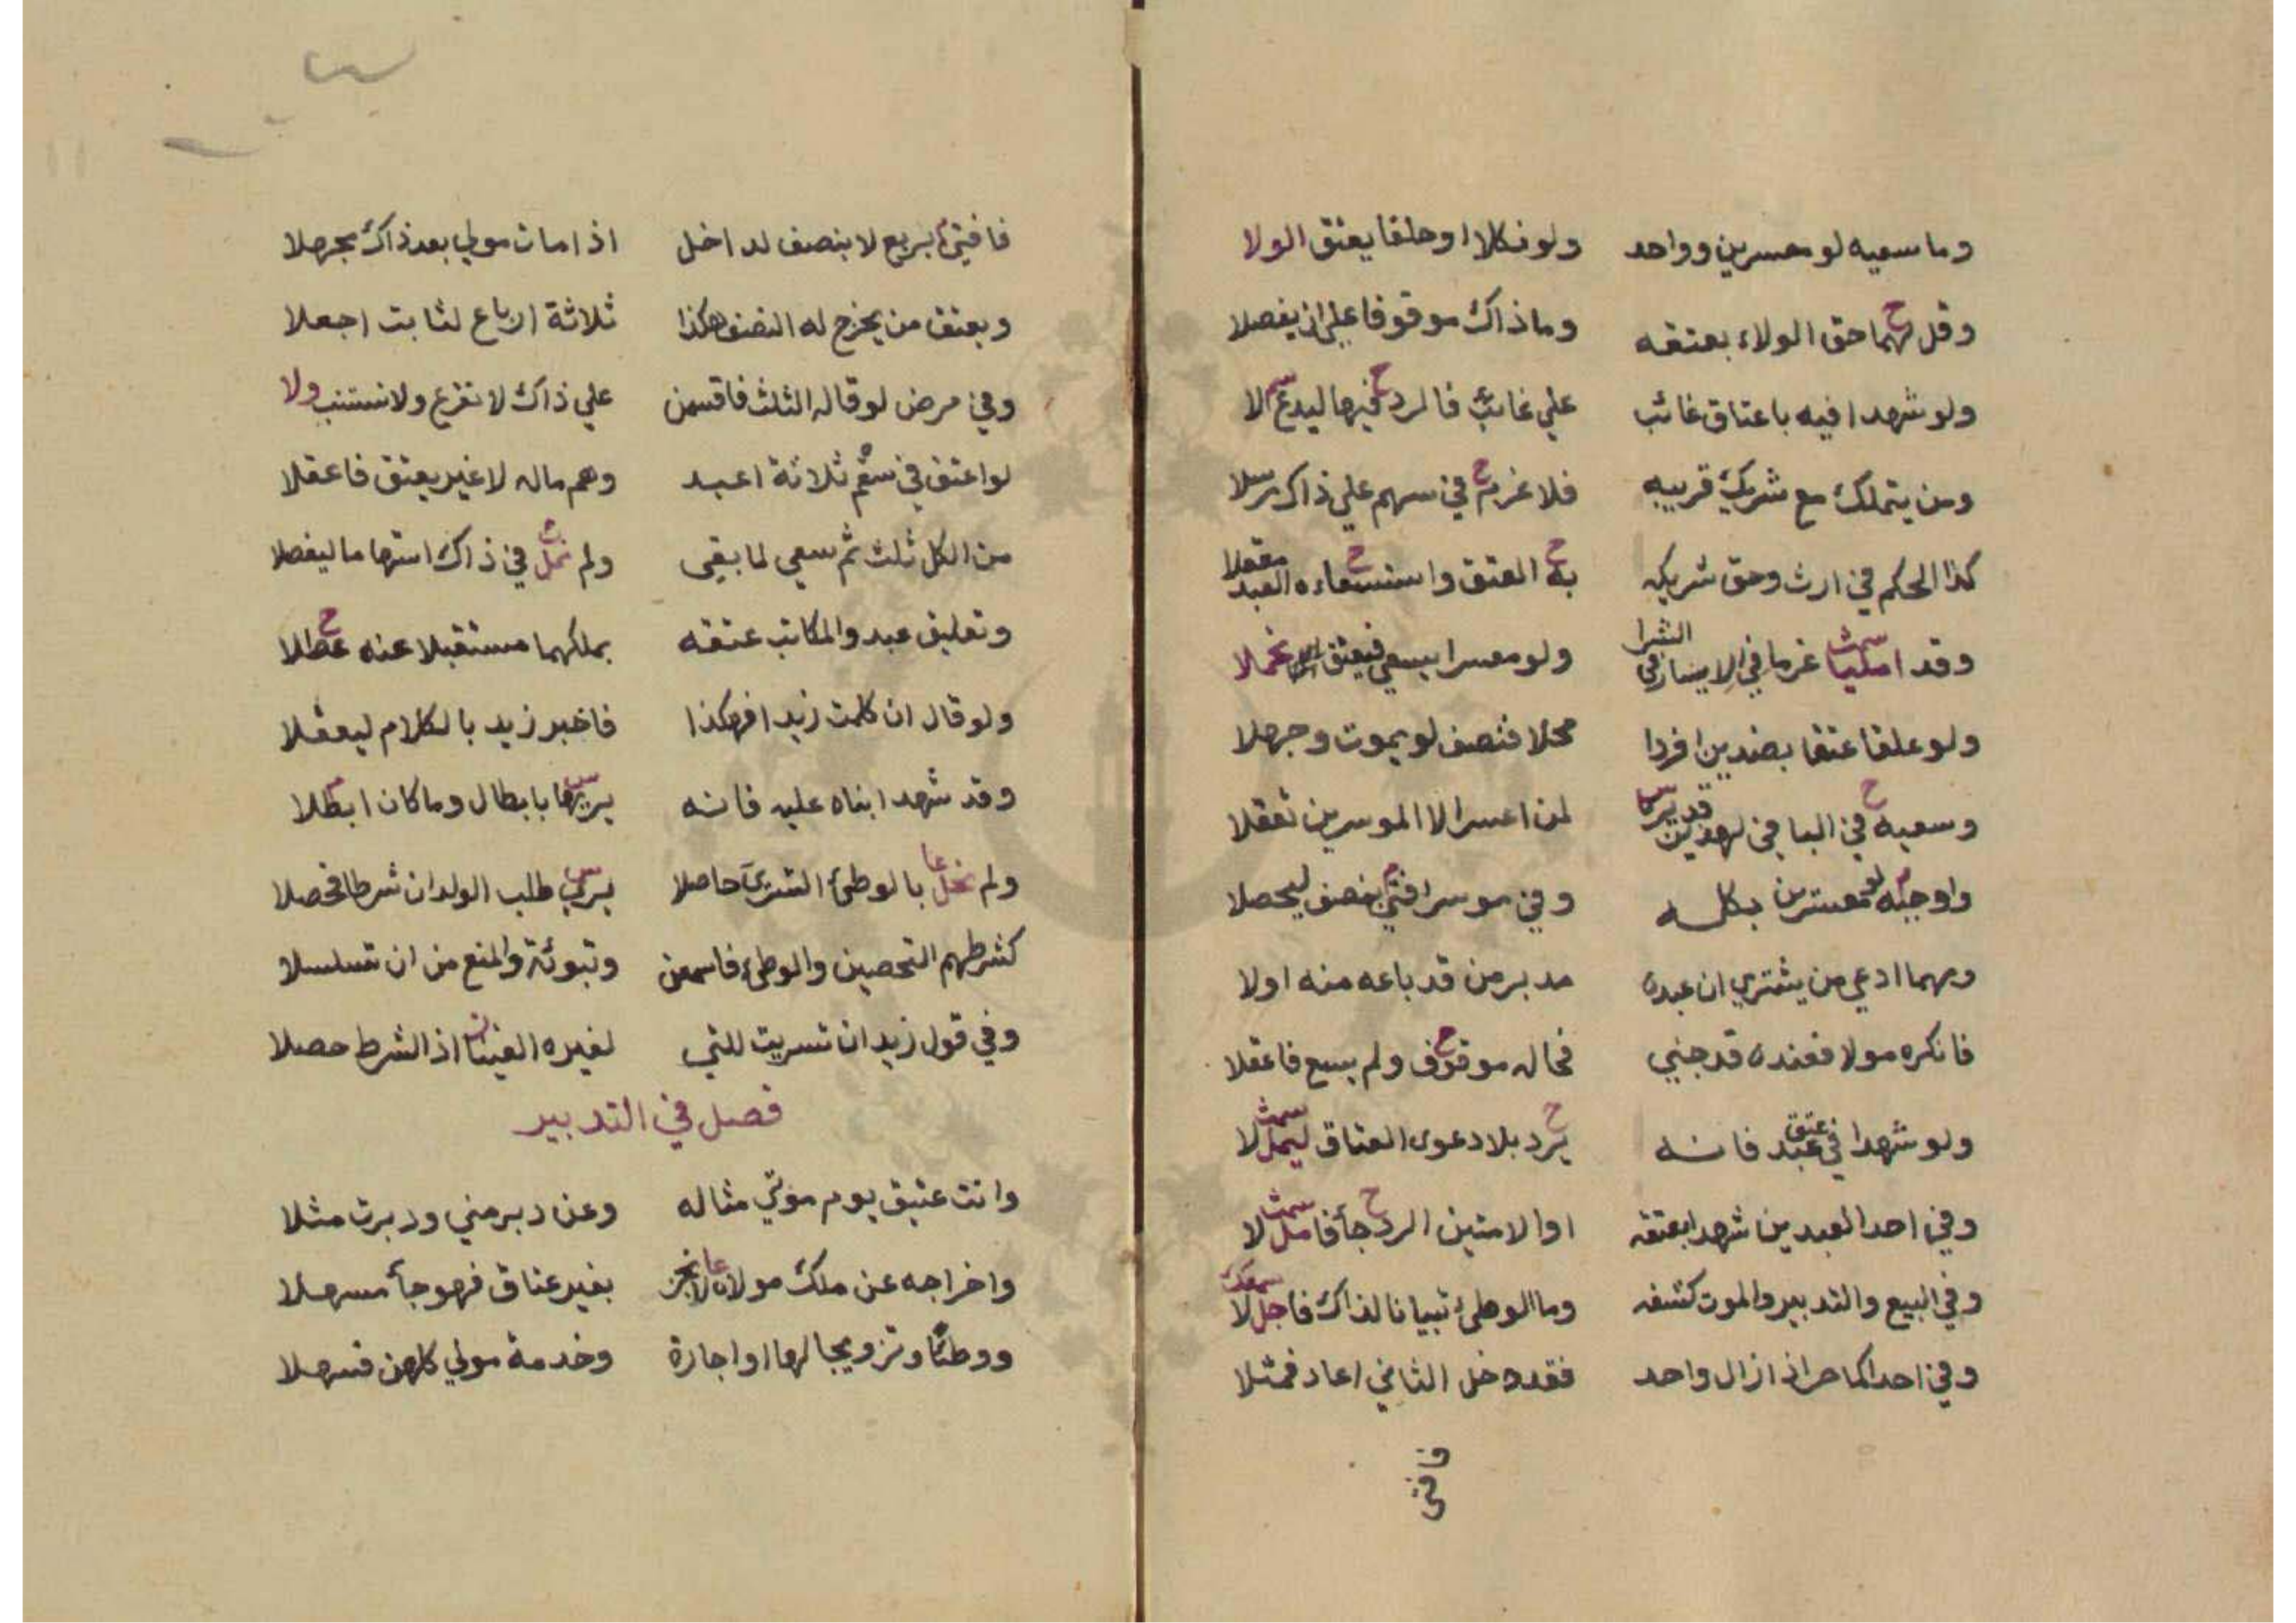 وما سعيه لو معسرين وواحد ولو نكلا او حلفا يعتق الولا
وقل لهما حق الولاء بعتقه وما ذاك موقوفا على ان يفصلا
ولو شهدا فيه باعتاق غائب علي غائب فالرد فيها ليدع لا
ومن يتملك مع شريك قريبه فلا غرم في سهم علي ذاك رسلا
كذا الحكم في ارث وحق شريكه به العتق واستسعاءه العبد معقلا
وقد امليا غرما في الايسار في الشرا ولو معسرا يسعي فيعتق
ولو علقا عتقا بضدين افردا محلا فنصف لو يموت وجهلا
وسعيه في الباقي لهذين قد يرى لمن اعسرا لا الموسرين تعقلا
واوجبه لو معسرين بكله وفي موسر افتى بنصف ليحصلا
ومهما ادعي من يشتري ان عبده مدبر من قد باعه منه اولا
فانكره مولا فعنده قد جني فحاله موقوف ولم يسع فاعقلا
ولو شهدا في عتق عبد فانه يرد بلا دعوى العتاق ليمل لا
وفي احد العبدين شهدا بعتقه او الامتين الرد جأ فامل لا
وفي البيع والتدبير والموت كشفه وما الوطئ تبيانا لذاك فاجل لا
وفي احد اكما حر اذ ازال واحد فقد دخل الثاني اعاد فمثلا
فافتى
فافتى بربع لا بنصف لداخل اذا مات مولي بعد ذاك مجهلا
ويعتق من يخرج له النصف هكذا ثلاثة ارباع لثابت اجعلا
وفي مرض لو قاله الثلث فاقسمن علي ذاك لا تقرع ولا تستنب ولا
لو اعتق في سقم ثلاثة اعبد وهم ماله لا غير يعتق فاعقلا
من الكل ثلث ثم سعي لما بقي ولم نمل في ذاك استهاما ليفصلا
وتعليق عبد والمكاتب عتقه بملكهما مستقبلا عنه عطلا
ولو قال ان كلمت زيدا فهكذا فاخبر زيد بالكلام ليعقلا
وقد شهد ابناه عليه فانه يريها بابطال وما كان ابطلا
ولم نخل بالوطئ التسري حاصلا يري طلب الولدان شرطا فحصلا
كشرطهم التحصين والوطئ فاسمعن وتبوئة والمنع من ان تسلسلا
وفي قول زيد ان تسريت للتي لغيره اذ الشرط حصلا
فصل في التدبير
وانت عتيق يوم موتي مثاله وعن دبر مني ودبرت مثلا
واخراجه عن ملك مولاه لا نجز بغير عتاق فهو جأ مسهلا
ووطئا وتزويجا لها او اجارة وخدمة مولي كلهن فسهلا